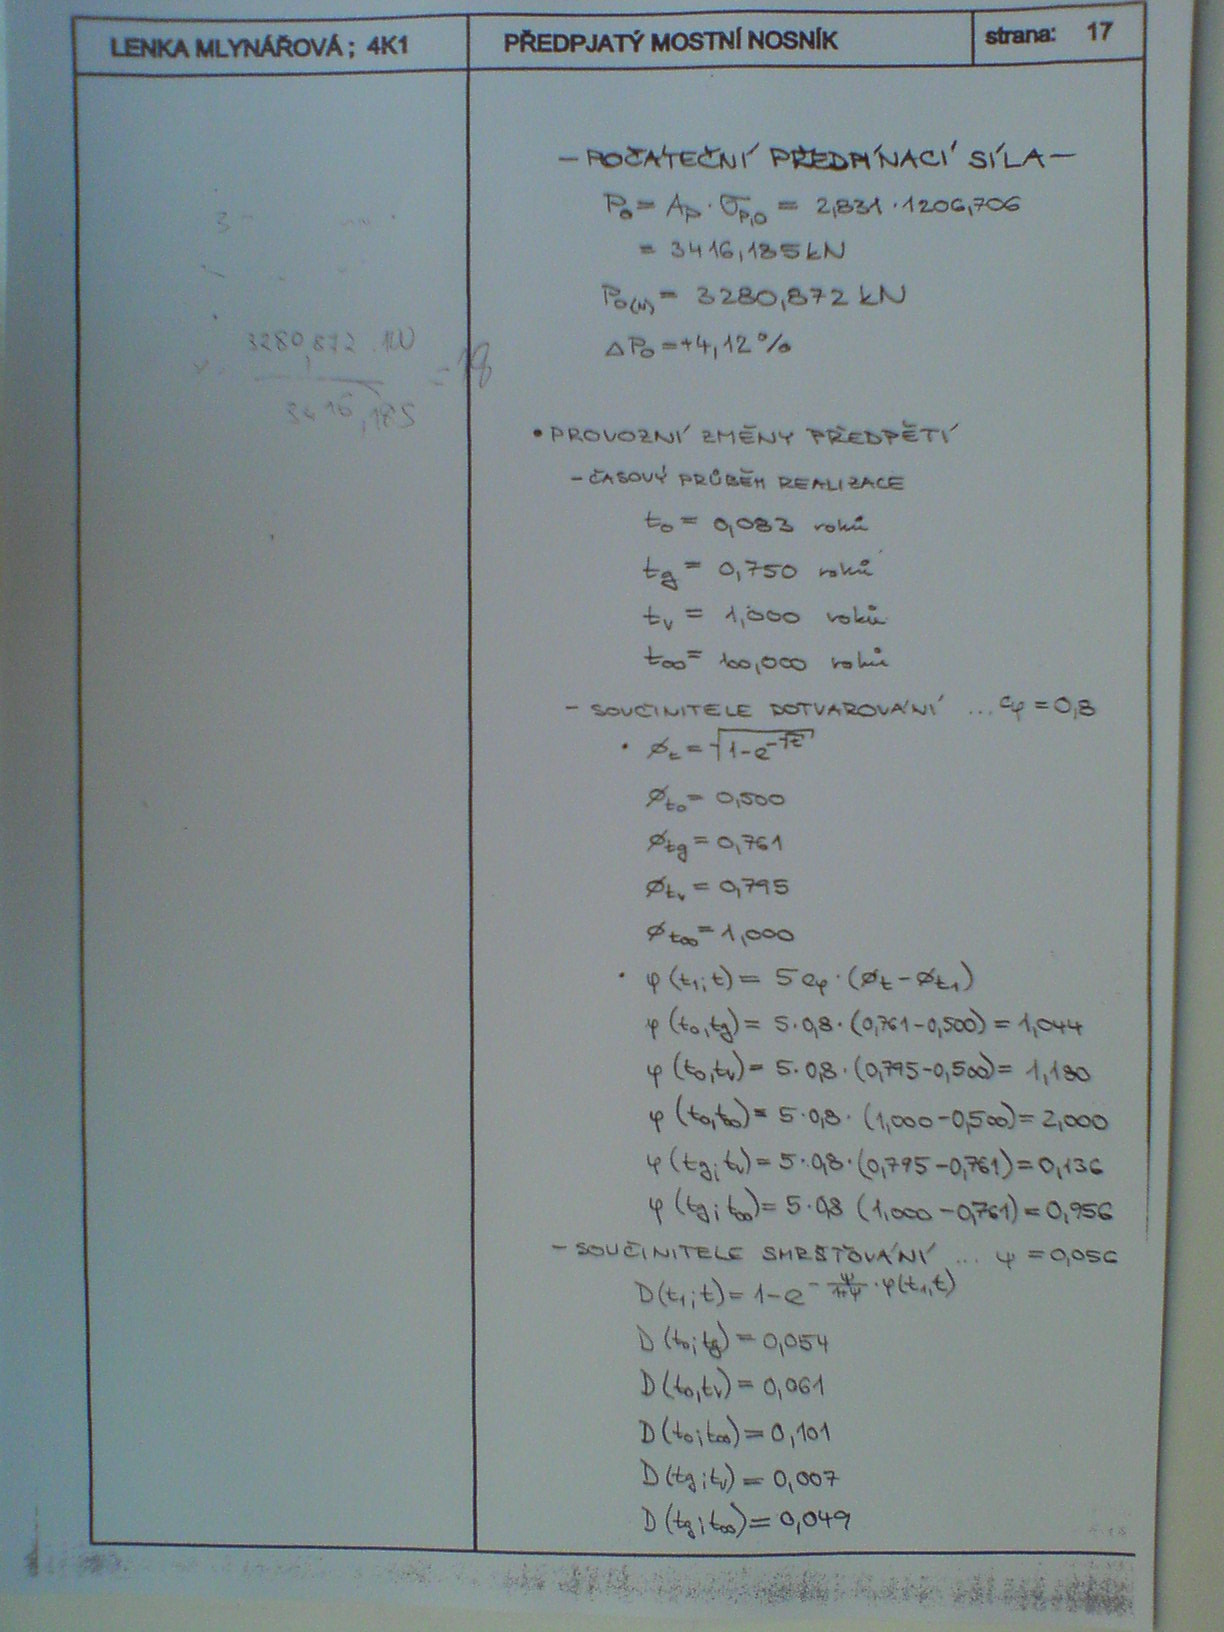 LENKA MLYNÁŘOVÁ ; 4K1
PŘEDPJATÝ MOSTNÍ NOSNÍK
strana: 17
3280,872 · 100
3416,185
– POČÁTEČNÍ PŘEDPÍNACÍ SÍLA –
P₀ = Aₚ · σₚ,₀ = 2,831 · 1206,706
= 3416,185 kN
P₀(N) = 3280,872 kN
ΔP₀ = +4,12 %
• PROVOZNÍ ZMĚNY PŘEDPĚTÍ
– ČASOVÝ PRŮBĚH REALIZACE
t₀ = 0,083 roků
tg = 0,750 roků
tv = 1,000 roků
t∞ = 100,000 roků
– SOUČINITELE DOTVAROVÁNÍ ... cφ = 0,8
• Øt = √(1-e^(-√t))
Øt₀ = 0,500
Øtg = 0,761
Øtv = 0,795
Øt∞ = 1,000
• φ (t₁; t) = 5 cφ · (Øt – Øt₁)
φ (t₀, tg) = 5 · 0,8 · (0,761 – 0,500) = 1,044
φ (t₀, tv) = 5 · 0,8 · (0,795 – 0,500) = 1,180
φ (t₀, t∞) = 5 · 0,8 · (1,000 – 0,500) = 2,000
φ (tg; tv) = 5 · 0,8 · (0,795 – 0,761) = 0,136
φ (tg; t∞) = 5 · 0,8 (1,000 – 0,761) = 0,956
– SOUČINITELE SMRŠŤOVÁNÍ ... ψ = 0,056
D(t₁; t) = 1 – e^(-ψ/(1+ψ) · φ(t₁, t))
D (t₀; tg) = 0,054
D (t₀, tv) = 0,061
D (t₀; t∞) = 0,101
D (tg; tv) = 0,007
D (tg; t∞) = 0,049